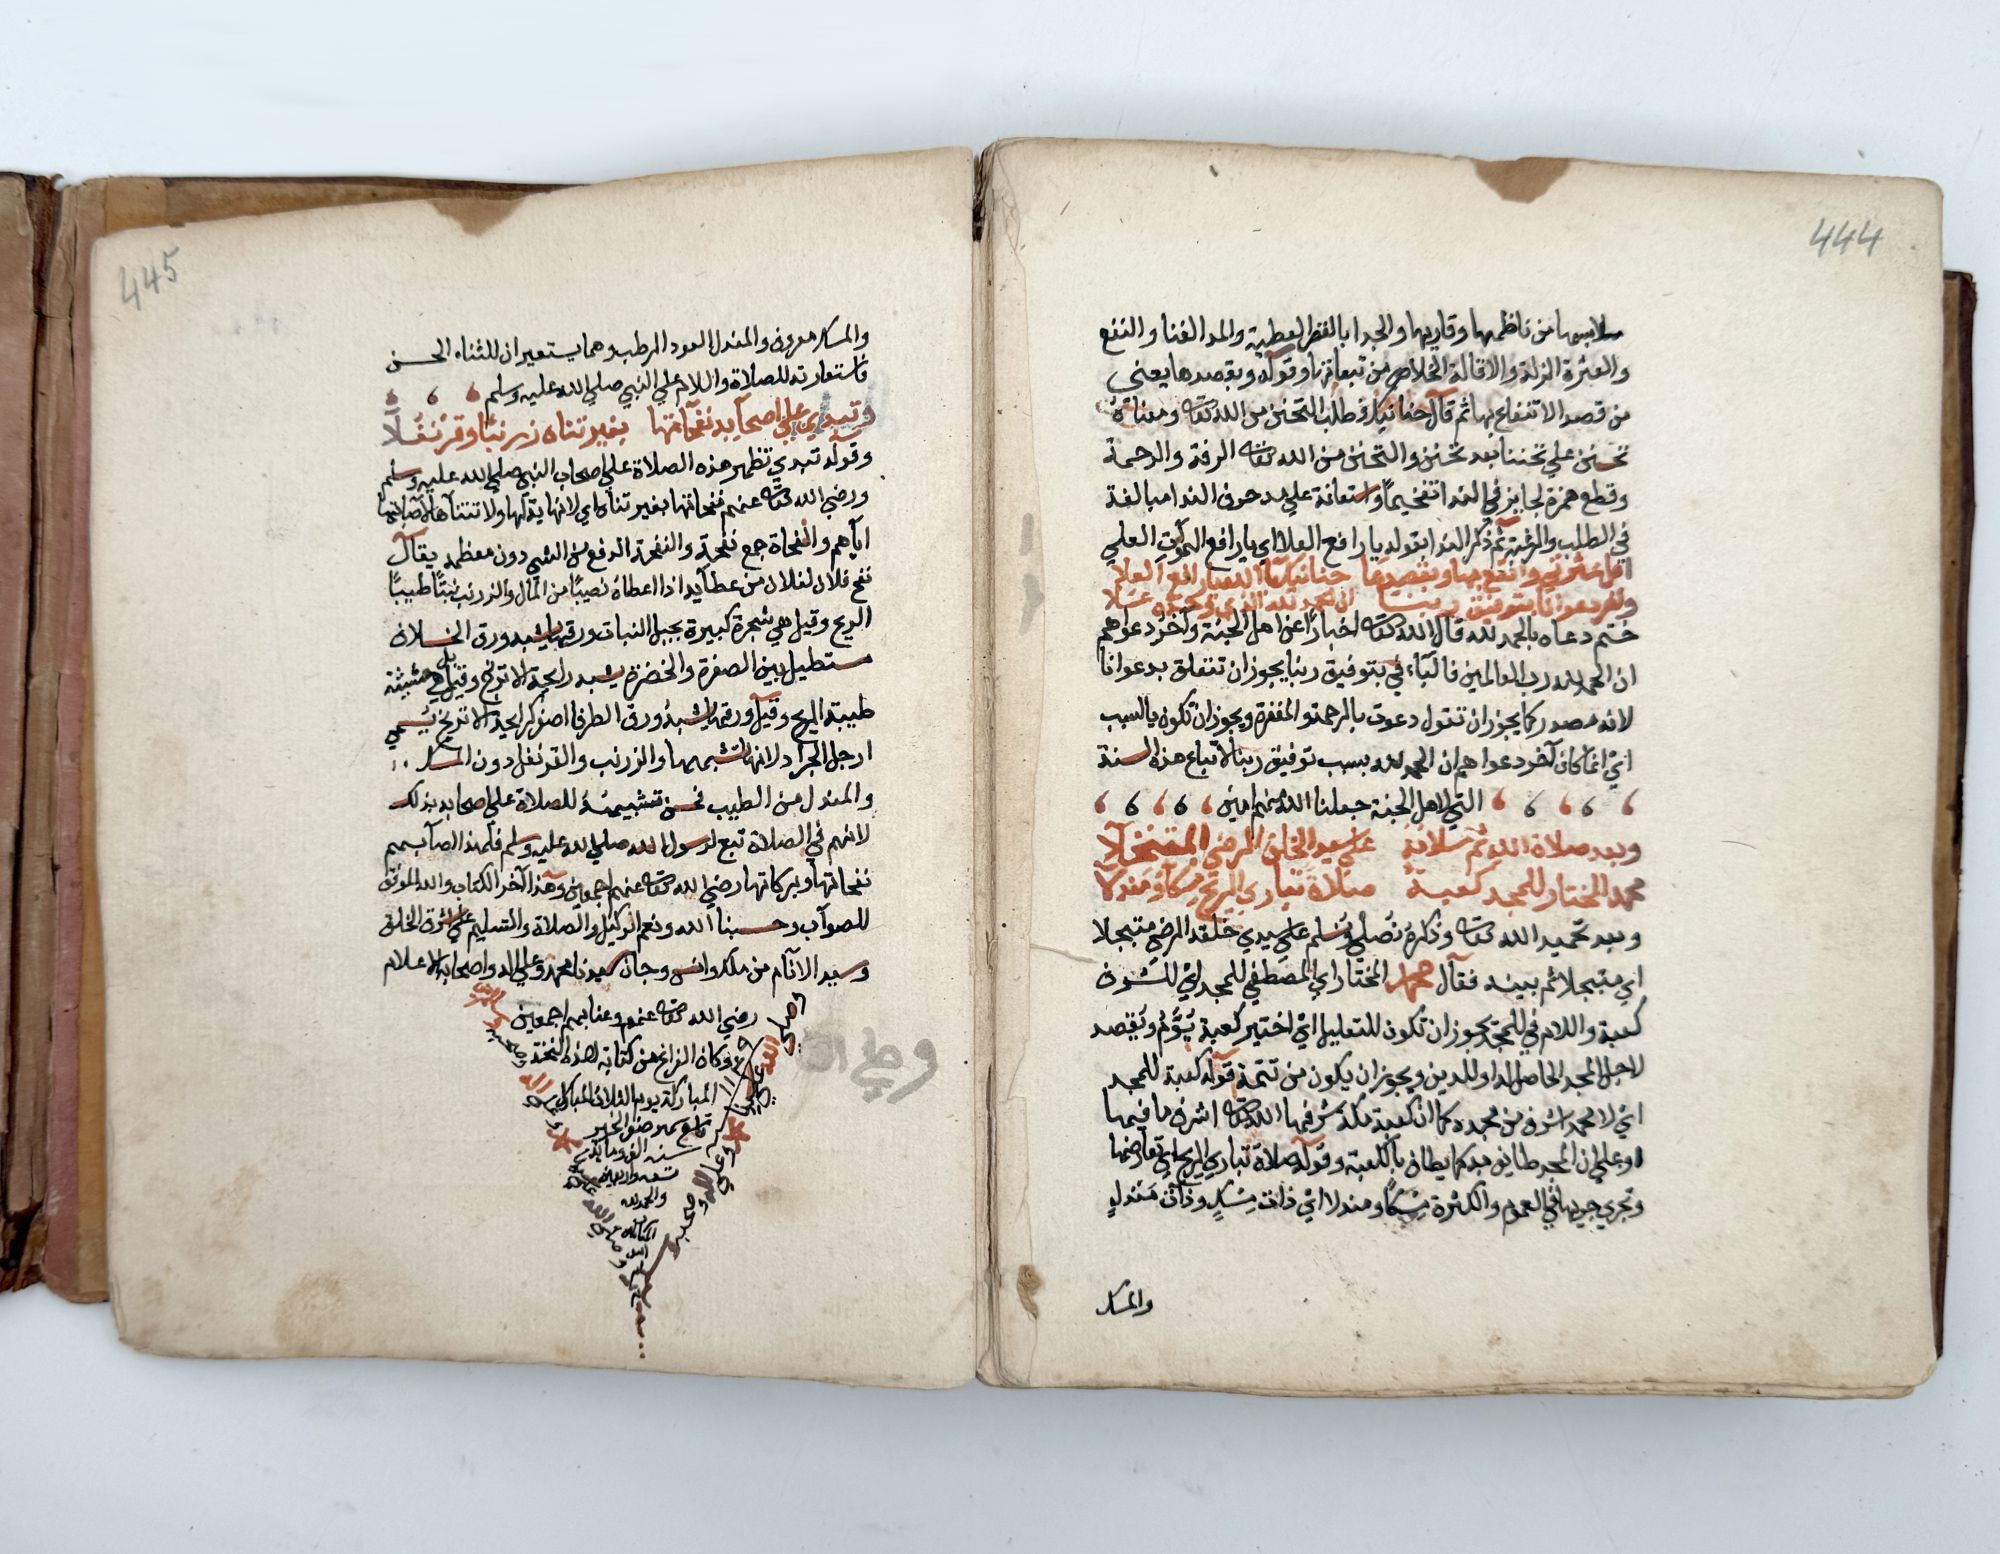 444
ملابسها من ناظمها وقاريها والجدا بالقصر العطية والمد الغنا والنفع
والعثرة الزلة والاقالة الخلاص من تبعاتها وقوله وبقصدها يعني
من قصد الانتفاع بها ثم قال حنانيك فطلب التحنن من الله تعالى ومعناه
تحنن علي تحننا بعد تحنن والتحنن من الله تعالى الرافة والرحمة
وقطع همزة الجايز في الندا تفخيما واستعانة علي مد حرف الندا مبالغة
في الطلب والرغبة ثم ذكر الندا بقوله يا رافع العلا اي يا رافع السموات العلي
اقل عثرتي وانفع بها وبقصدها حنانيك يا الله يا رافع العلا
واخر دعوانا بتوفيق ربنا ان الحمد لله الذي وحده علا
ختم دعاه بالحمد لله قال الله تعالى اخبارا عن اهل الجنة وآخر دعواهم
ان الحمد لله رب العالمين فالباء في بتوفيق ربنا يجوز ان تتعلق بدعوانا
لانه مصدر كما يجوز ان تقول دعوت بالرحمة والمغفرة ويجوز ان تكون بالسبب
اي انما كان آخر دعواهم ان الحمد لله بسبب توفيق ربنا لاتباع هذه السنة
التي لاهل الجنة جعلنا الله منهم امين
وبعد صلاة الله ثم سلامه علي سيد الخلق الرضي المتنخلا
محمد المختار للمجد كعبة صلاة تباري الريح مسكا ومندلا
وبعد تحميد الله تعالى وذكره نصلي ونسلم علي سيدي خلقه الرضي متبجلا
اي متبجلا ثم بينه فقال محمد المختار اي المصطفي للمجد اي للشرف
كعبة واللام في للمجد يجوز ان تكون للتعليل اي اختير كعبة يؤم ويقصد
لاجل المجد الحاصل له او للدين ويجوز ان يكون من تتمة قوله كعبة للمجد
اي لا محمد اشرف من مجده كما ان كعبة مكة شرفها الله تعالى اشرف ما فيها
او علي ان المجد طايف به كما يطاف بالكعبة وقوله صلاة تباري الريح اي تعارضها
وتجري جريها في العموم والكثرة مسكا ومندلا اي ذات مسك وذات مندل
والمسك
445
والمسك معروف والمندل العود الرطب وهما يستعيران للثناء الحسن
فاستعارته للصلاة والسلام علي النبي صلي الله عليه وسلم
وتبدي علي اصحابه نفحاتها بغير تناه زرنبا وقرنفلا
وقوله تبدي تظهر هذه الصلاة علي اصحاب النبي صلي الله عليه وسلم
ورضي الله تعالى عنهم نفحاتها بغير تناه اي لا نهاية لها ولا تتناها لاصابتها
اياهم والنفحاة جمع نفحة والنفحة الدفع من الشي دون معظمه يقال
نفح فلان لفلان من عطايه اذا اعطاه نصيبا من المال والزرنب نبتا طيبا
الريح وقيل هي شجرة كبيرة بجبل النبات ورقها يشبه ورق الخلاف
مستطيل بين الصفرة والخضرة يشبه رايحة الاترنج وقيل بل هي حشيشة
طيبة الريح وقيل ورقها يشبه ورق الطرفا اصفر كرايحة الاترنج يسمي
ارجل الجراد لانها تشبهها والزرنب والقرنفل دون المسك
والمندل من الطيب فحسن تشبيهه للصلاة علي اصحابه بذلك
لانهم في الصلاة تبع لرسول الله صلي الله عليه وسلم فلهذا اصابهم
نفحاتها وبركاتها رضي الله تعالى عنهم اجمعين وهذا آخر الكتاب والله الموفق
للصواب وحسبنا الله ونعم الوكيل والصلاة والتسليم علي اشرف الخلق
وسيد الانام من ملك وانس وجان سيدنا محمد وعلي اله واصحابه الاعلام
رضي الله تعالى عنهم وعنا بهم اجمعين
وكان الفراغ من كتابة هذه النسخة
المباركة يوم الثلاثا المبارك
تاسع شهر صفر الخير
سنه الف ومايه
تسعه واربعين
والحمد لله